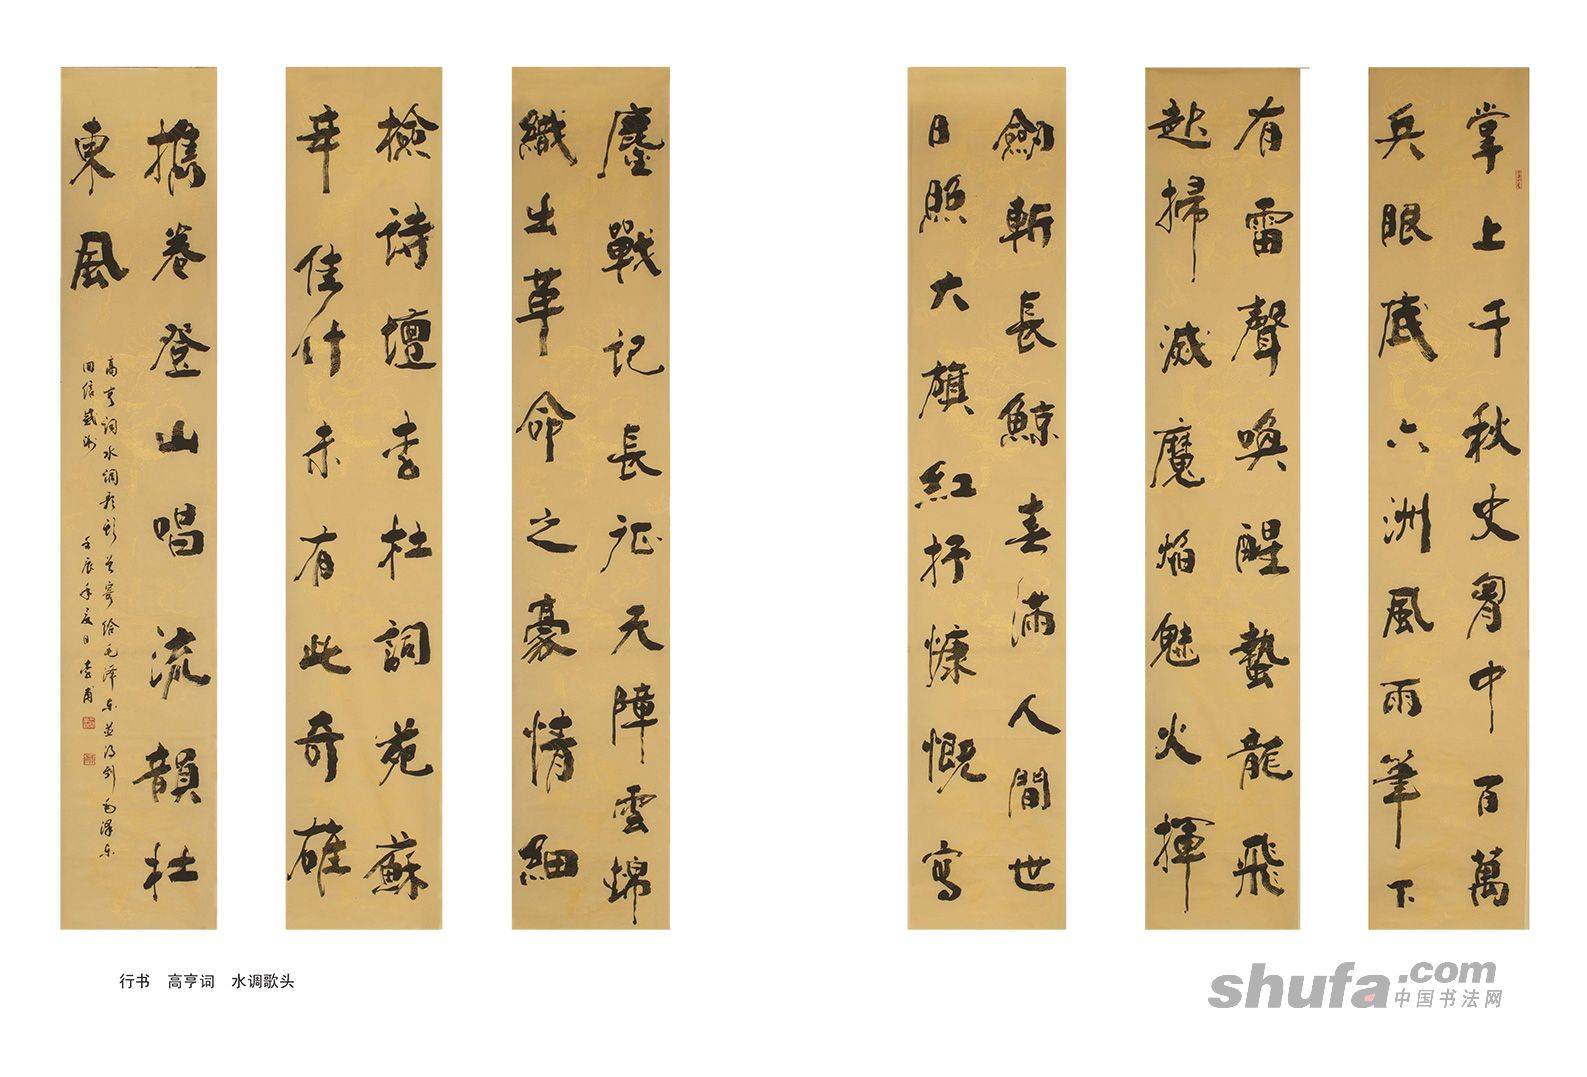 掌上千秋史胷中百萬
兵眼底六洲風雨筆下
有雷聲喚醒蟄龍飛
起掃滅魔焰魅火揮
劍斬長鯨春滿人間世
日照大旗紅抒慷慨寫
鏖戰記長征天障雲錦
織出革命之豪情細
檢詩壇李杜詞苑蘇
辛佳什未有此奇雄
擕卷登山唱流韻壮
東風
高亨詞水調歌頭曾寄給毛泽东並得到毛澤东
回信感謝 壬辰年夏日李甫
行书 高亨词 水调歌头
shufa.com
中国书法网